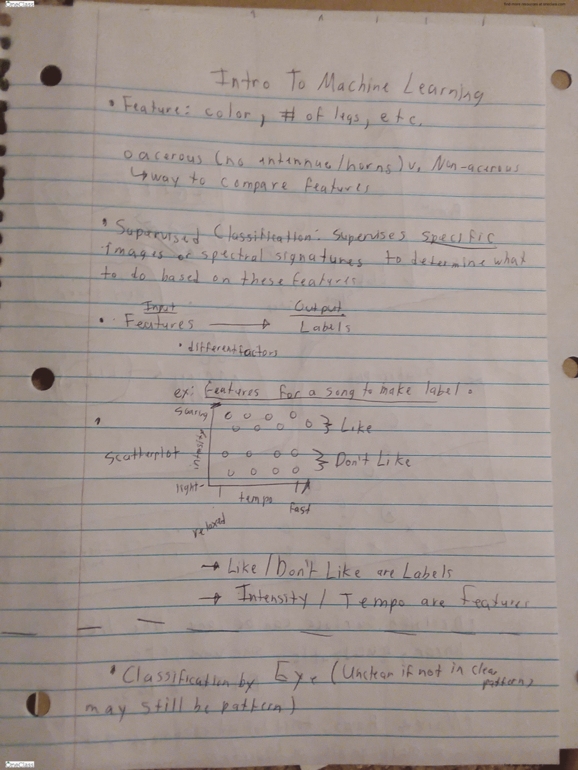 OneClass
Intro To Machine Learning
• Feature: color, # of legs, etc.
○ acerous (no intennae/horns) v. Non-acerous
↳ way to compare features
• Supervised Classification: Supervises specific
images or spectral signatures to determine what
to do based on these features
Input Output
• Features → Labels
• different factors
ex: Features for a song to make label.
soaring
} Like
Scatterplot intensity } Don't Like
light
tempo
relaxed fast
→ Like / Don't Like are Labels
→ Intensity / Tempo are features
• Classification by Eye (Unclear if not in clear
pattern,
may still be pattern)
OneClass